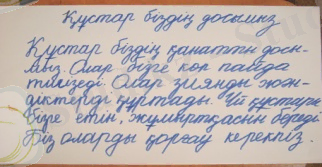 Құстар біздің досымыз
Құстар біздің қанатты досы-
мыз. Олар бізге көп пайда
тигізеді. Олар зиянды жән-
діктерді құртады. Үй құстары
бізге етін, жұмыртқасын береді
Біз оларды қорғау керекпіз.